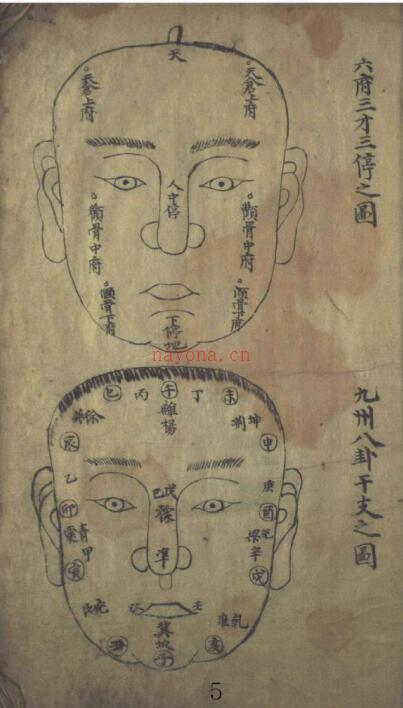 六府三才三停之圖
天
天倉上府
天倉上府
人中停
顴骨中府
顴骨中府
頤骨下府
下停地
nayona.cn
九州八卦干支之圖
巳
丙
午
丁
未
徐巽
雍楊
坤
辰
申
乙
庚
卯
戊
己
酉
兌
震
青
甲
準
梁辛
寅
戌
艮
兗
癸
壬
乾
雍
冀
坎
子
丑
亥
5